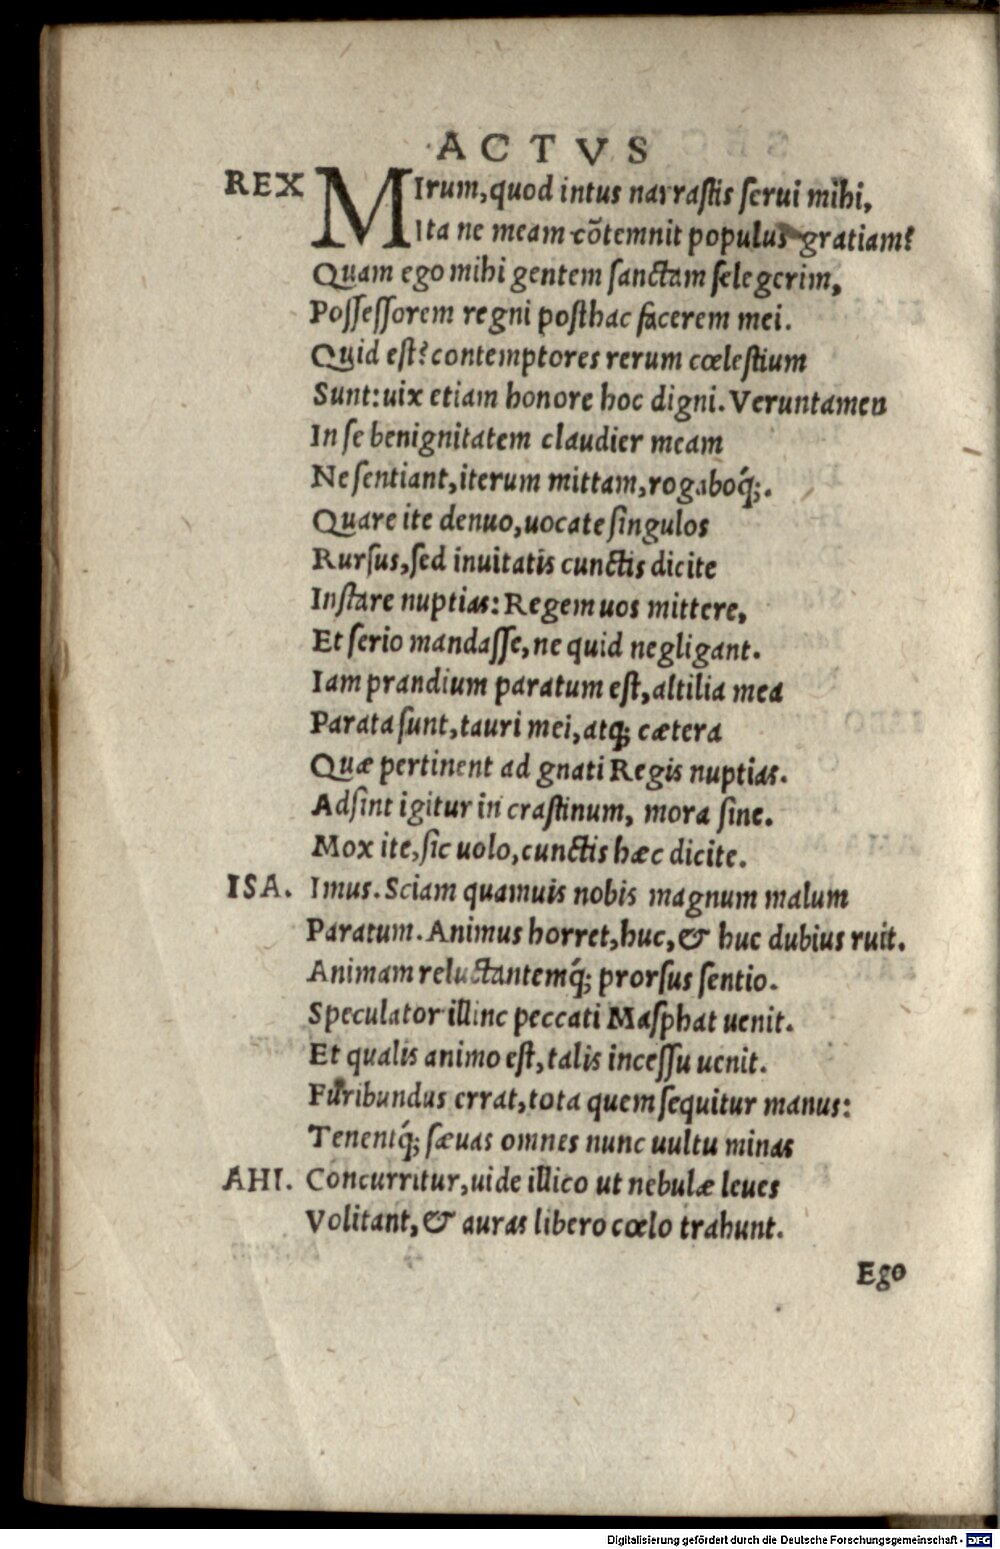 ACTVS
REX MIrum, quod intus narrastis serui mihi,
Ita ne meam cõtemnit populus gratiam?
Quam ego mihi gentem sanctam selegerim,
Possessorem regni posthac facerem mei.
Quid est? contemptores rerum cœlestium
Sunt: uix etiam honore hoc digni. Veruntamen
In se benignitatem claudier meam
Ne sentiant, iterum mittam, rogaboq́;.
Quare ite denuo, uocate singulos
Rursus, sed inuitatis cunctis dicite
Instare nuptias: Regem uos mittere,
Et serio mandasse, ne quid negligant.
Iam prandium paratum est, altilia mea
Parata sunt, tauri mei, atq; cætera
Quæ pertinent ad gnati Regis nuptias.
Adsint igitur in crastinum, mora sine.
Mox ite, sic uolo, cunctis hæc dicite.
ISA. Imus. Sciam quamuis nobis magnum malum
Paratum. Animus horret, huc, & huc dubius ruit.
Animam reluctantemq́; prorsus sentio.
Speculator illinc peccati Masphat uenit.
Et qualis animo est, talis incessu uenit.
Furibundus errat, tota quem sequitur manus:
Tenentq́; sæuas omnes nunc uultu minas
AHI. Concurritur, uide illico ut nebulæ leues
Volitant, & auras libero cœlo trahunt.
Ego
Digitalisierung gefördert durch die Deutsche Forschungsgemeinschaft - DFG